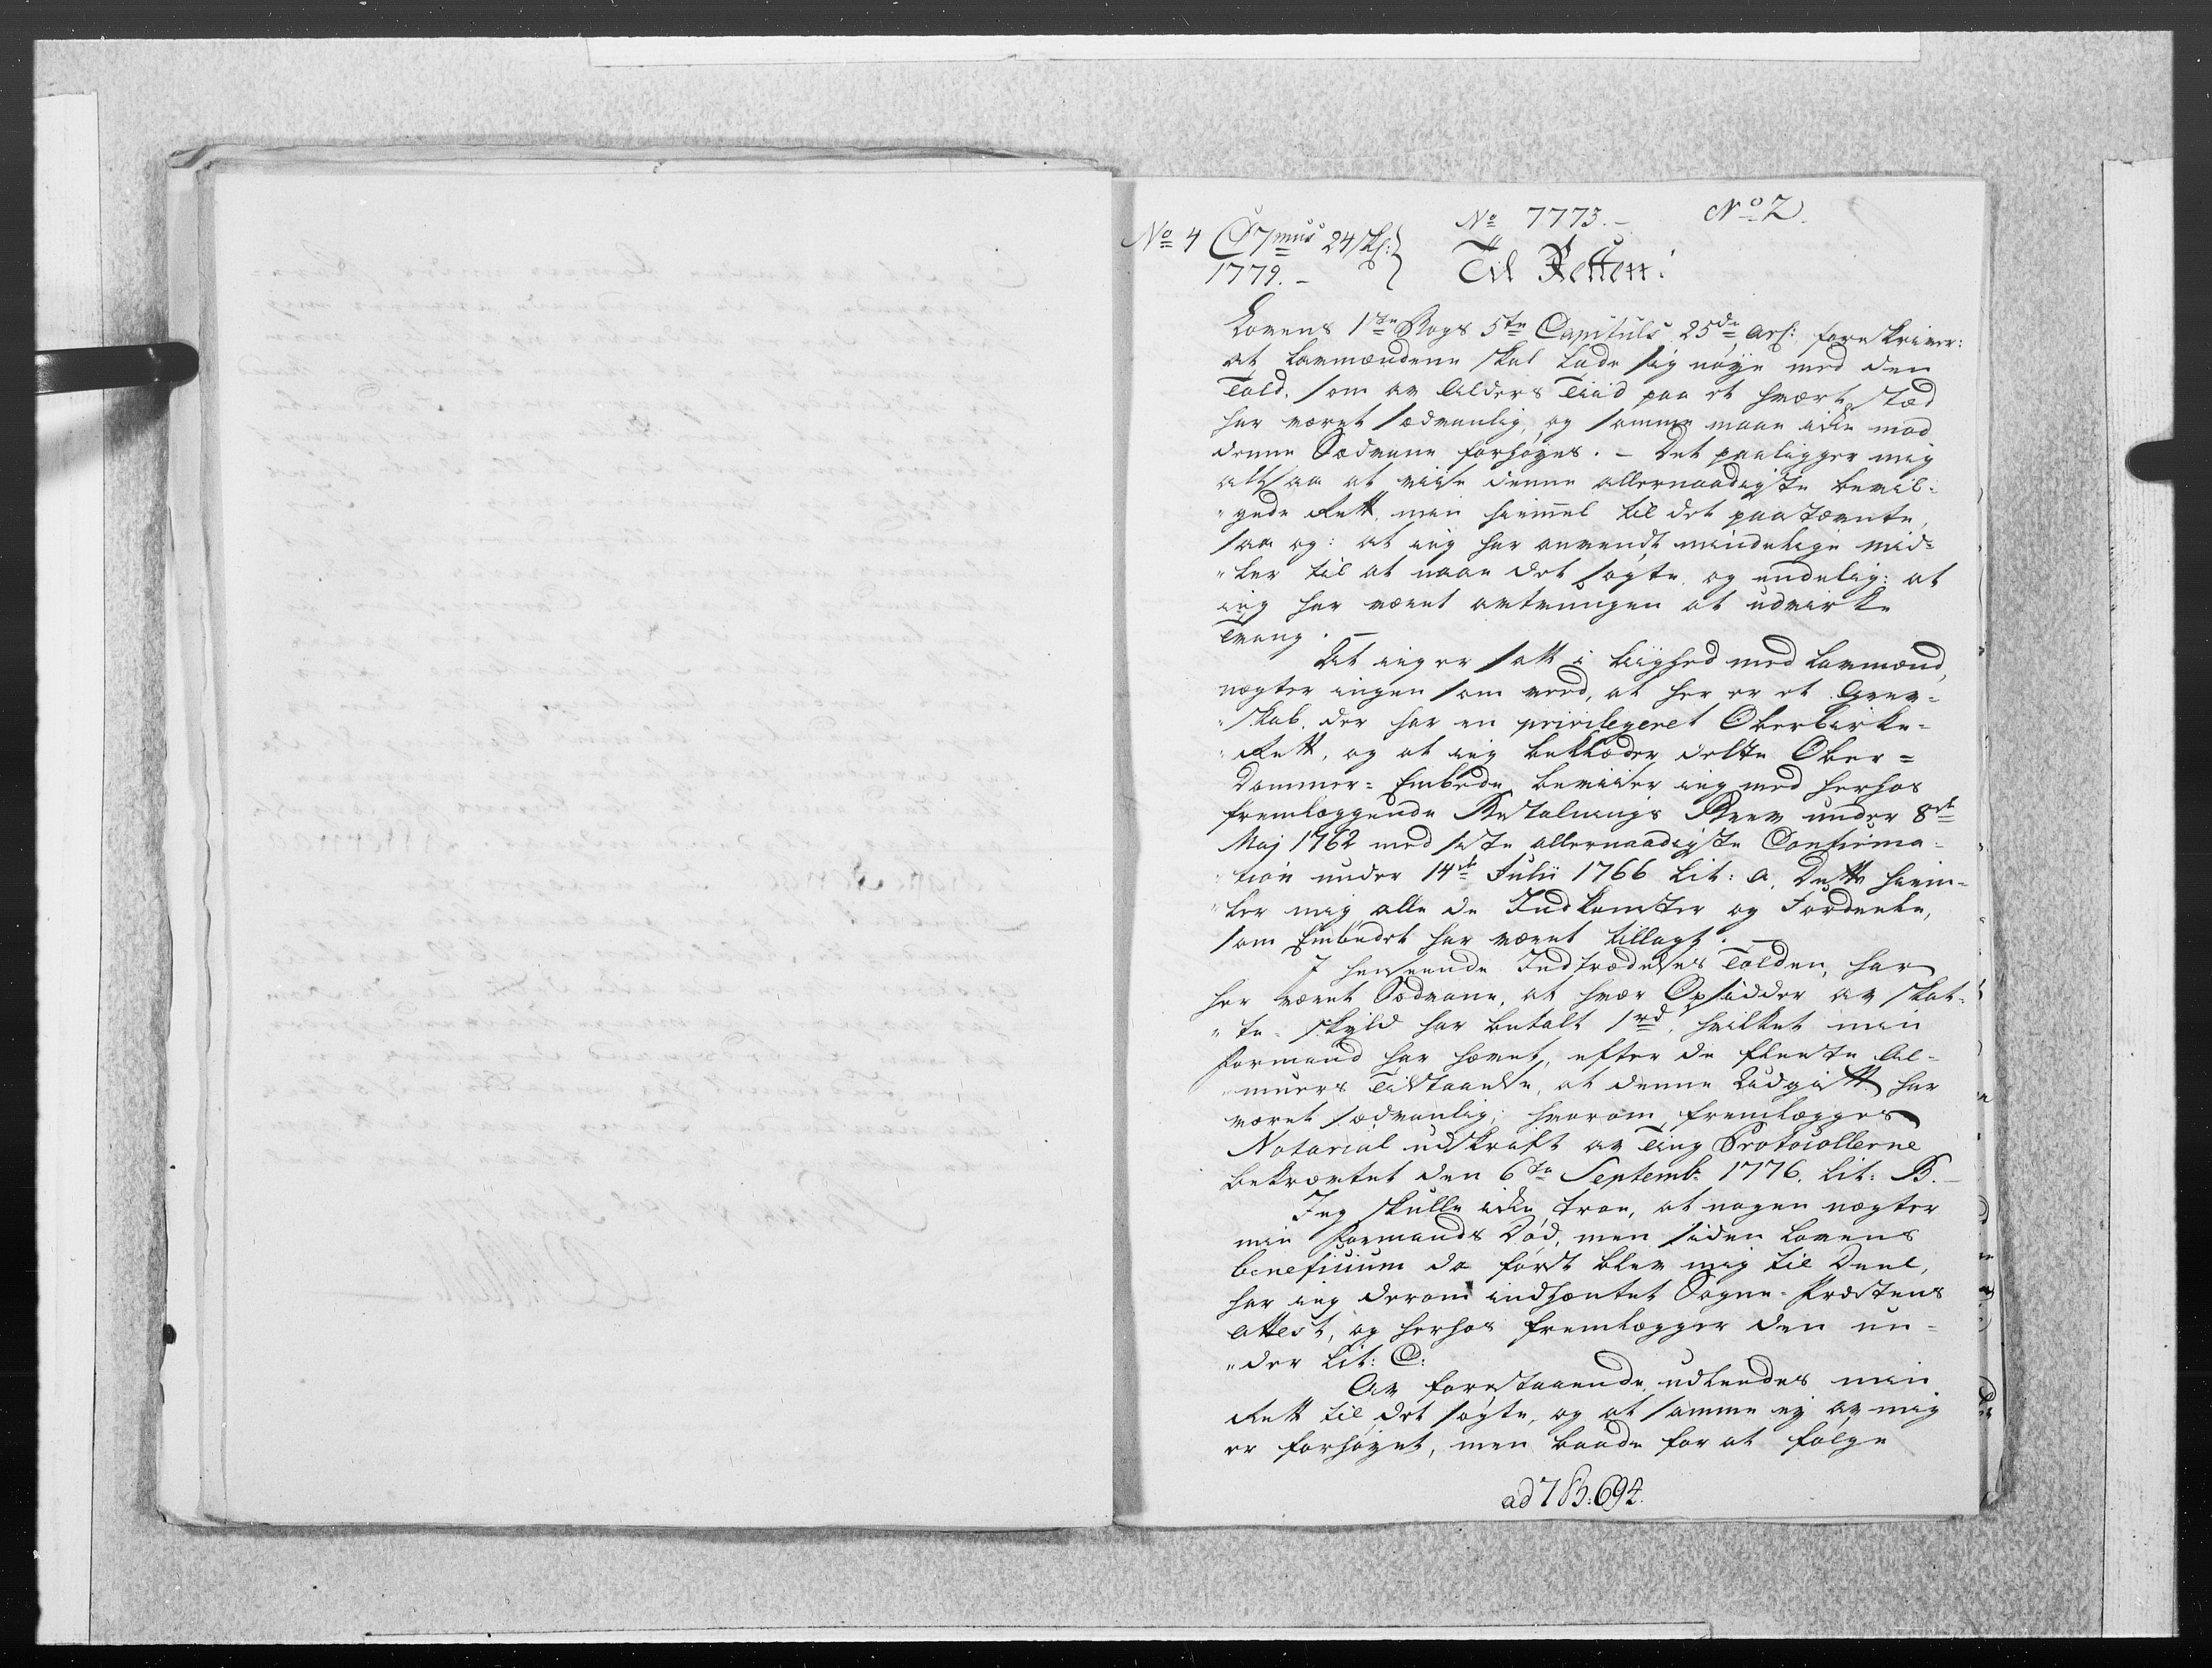 No 7773.- No 2.
No 4 C 7mus 24 sk:
1779.- Til Retten!
Lovens 1ste Bogs 5te Capituls 25de Art: foreskriver:
at Lavmændene skal lade sig nøye med den
Told, som av Alders Tiid paa et hvært stæd
har været sædvanlig, og samme maae ikke mod
denne Sædvane forhøyes. - Det paaligger mig
altsaa at viise denne allernaadigste bevil-
"gede Rett, min hiemmel til det paastævnte,
saa og: at ieg har anvendt mindelige mid-
"ler til at naae det søgte, og endelig: at
ieg har været avtvungen at udvirke
Tvang. -
At ieg er satt i liighed med Lavmænd,
nægter ingen som veed, at her er et Grev-
"skab, der har en privilegeret Oberbirke-
"Rett, og at ieg beklæder dette Ober=
Dommer= Embede, beviiser ieg med herhos
fremlæggende Bestalnings Brev under 8de
Maj 1762 med siste allernaadigste Confirma-
"tion under 14de Julii 1766 Lit: A. Dette hiem-
"ler mig alle de Indkomster og Fordeele,
som Embedet har været tillagt. -
I henseende Indtrædelses Tolden, har
her været Sædvane, at hvær Opsidder av skat-
"te- skyld har betalt 1rd, hvilket min
Formand har hævet, efter de fleeste Al-
"muers Tilstaaelse, at denne Udgivt har
været sædvanlig; hvorom fremlægges
Notarial udskrift av Ting Protocollerne
bekrævtet den 6te Septembr 1776. Lit: B. -
Jeg skulle ikke troe, at nogen nægter
min Formands Død, men siden Lovens
beneficium da først blev mig til Deel,
har ieg derom indhæntet Sogne- Præstens
Attest, og herhos fremlægger den un-
"der Lit: C:
Av forestaaende udleedes min
Rett til det søgte, og at samme ey av mig
er forhøyet, men baade for at følge
ad 7 B: 694.